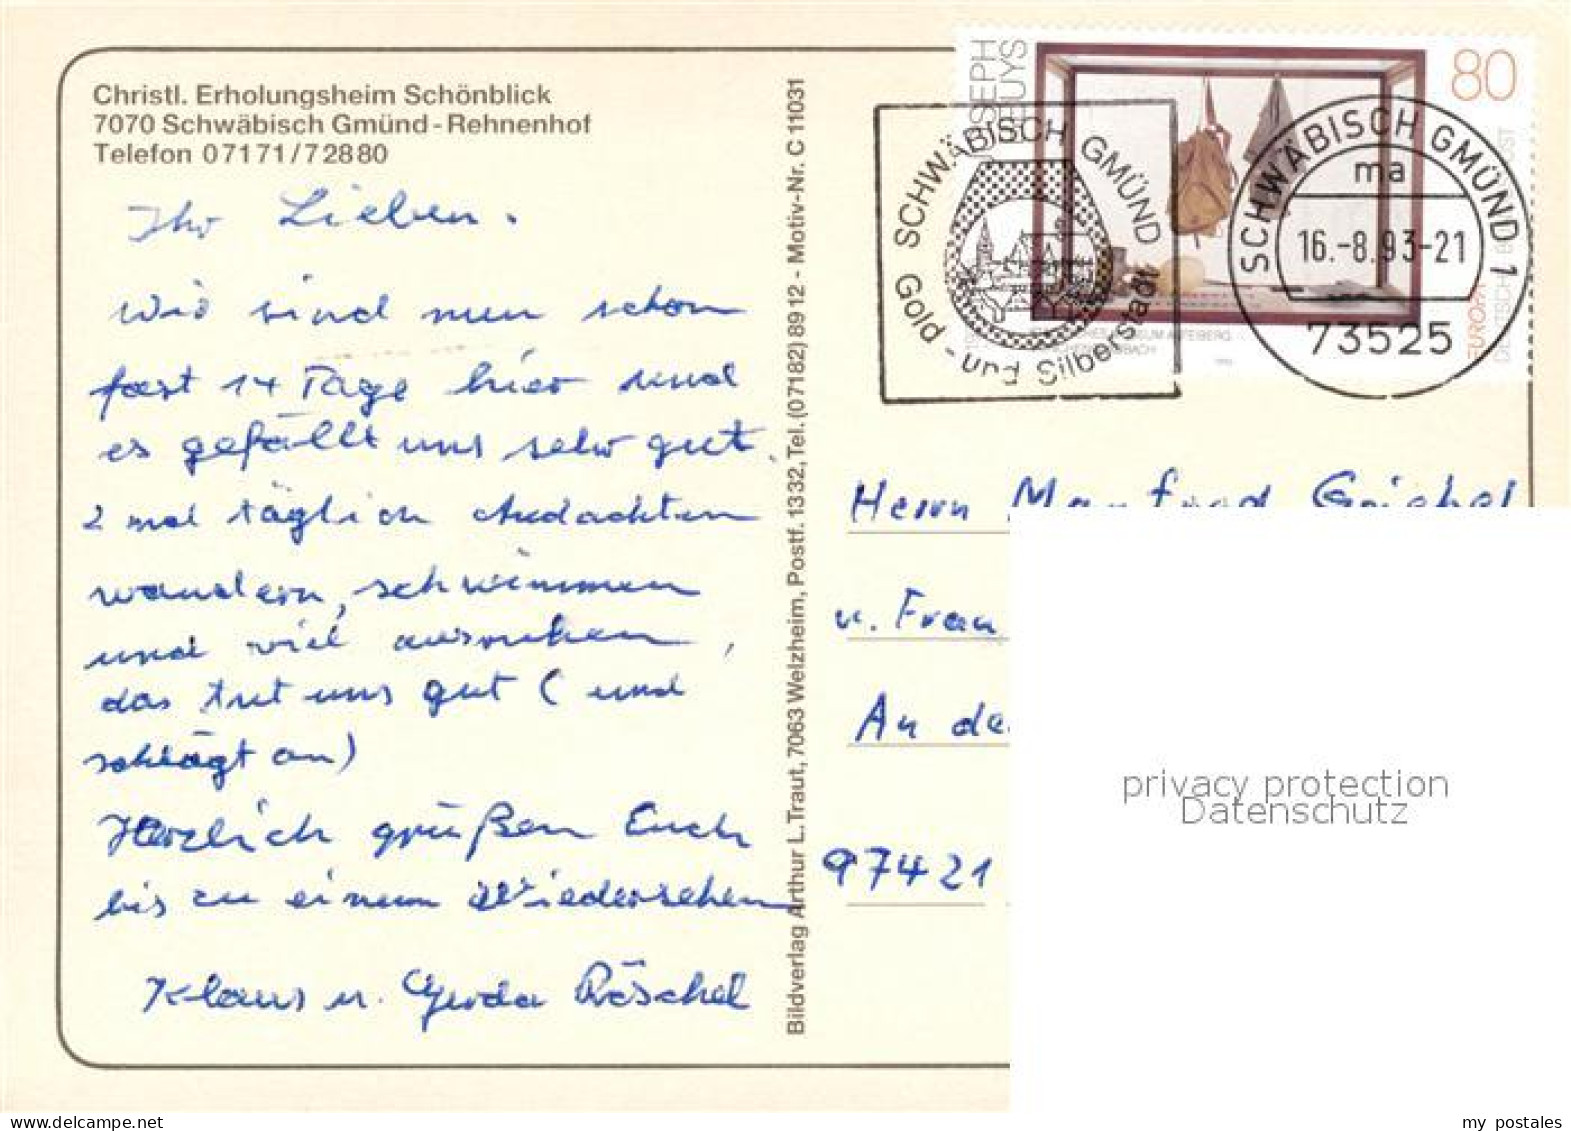 Christl. Erholungsheim Schönblick
7070 Schwäbisch Gmünd-Rehnenhof
Telefon 07171/72880
Ihr Lieben.
Wir sind nun schon
fast 14 Tage hier und
es gefällt uns sehr gut.
2 mal täglich Andachten
wandern, schwimmen
und viel ausruhen,
das tut uns gut (und
schlägt an)
Herzlich grüßen Euch
bis zu einem Wiedersehen
Klaus u. Gerda Röschel
Bildverlag Arthur L. Traut, 7063 Welzheim, Postf. 1332, Tel. (07182) 8912 - Motiv-Nr. C 11031
SCHWÄBISCH GMÜND
Gold - und Silberstadt
JOSEPH
BEUYS
80
DEUTSCHE BUNDESPOST
EUROPA
SCHWÄBISCH GMÜND 1
ma
16.-8.93-21
73525
Herrn Manfred
u. Frau
An de
97421
privacy protection
Datenschutz
my postales